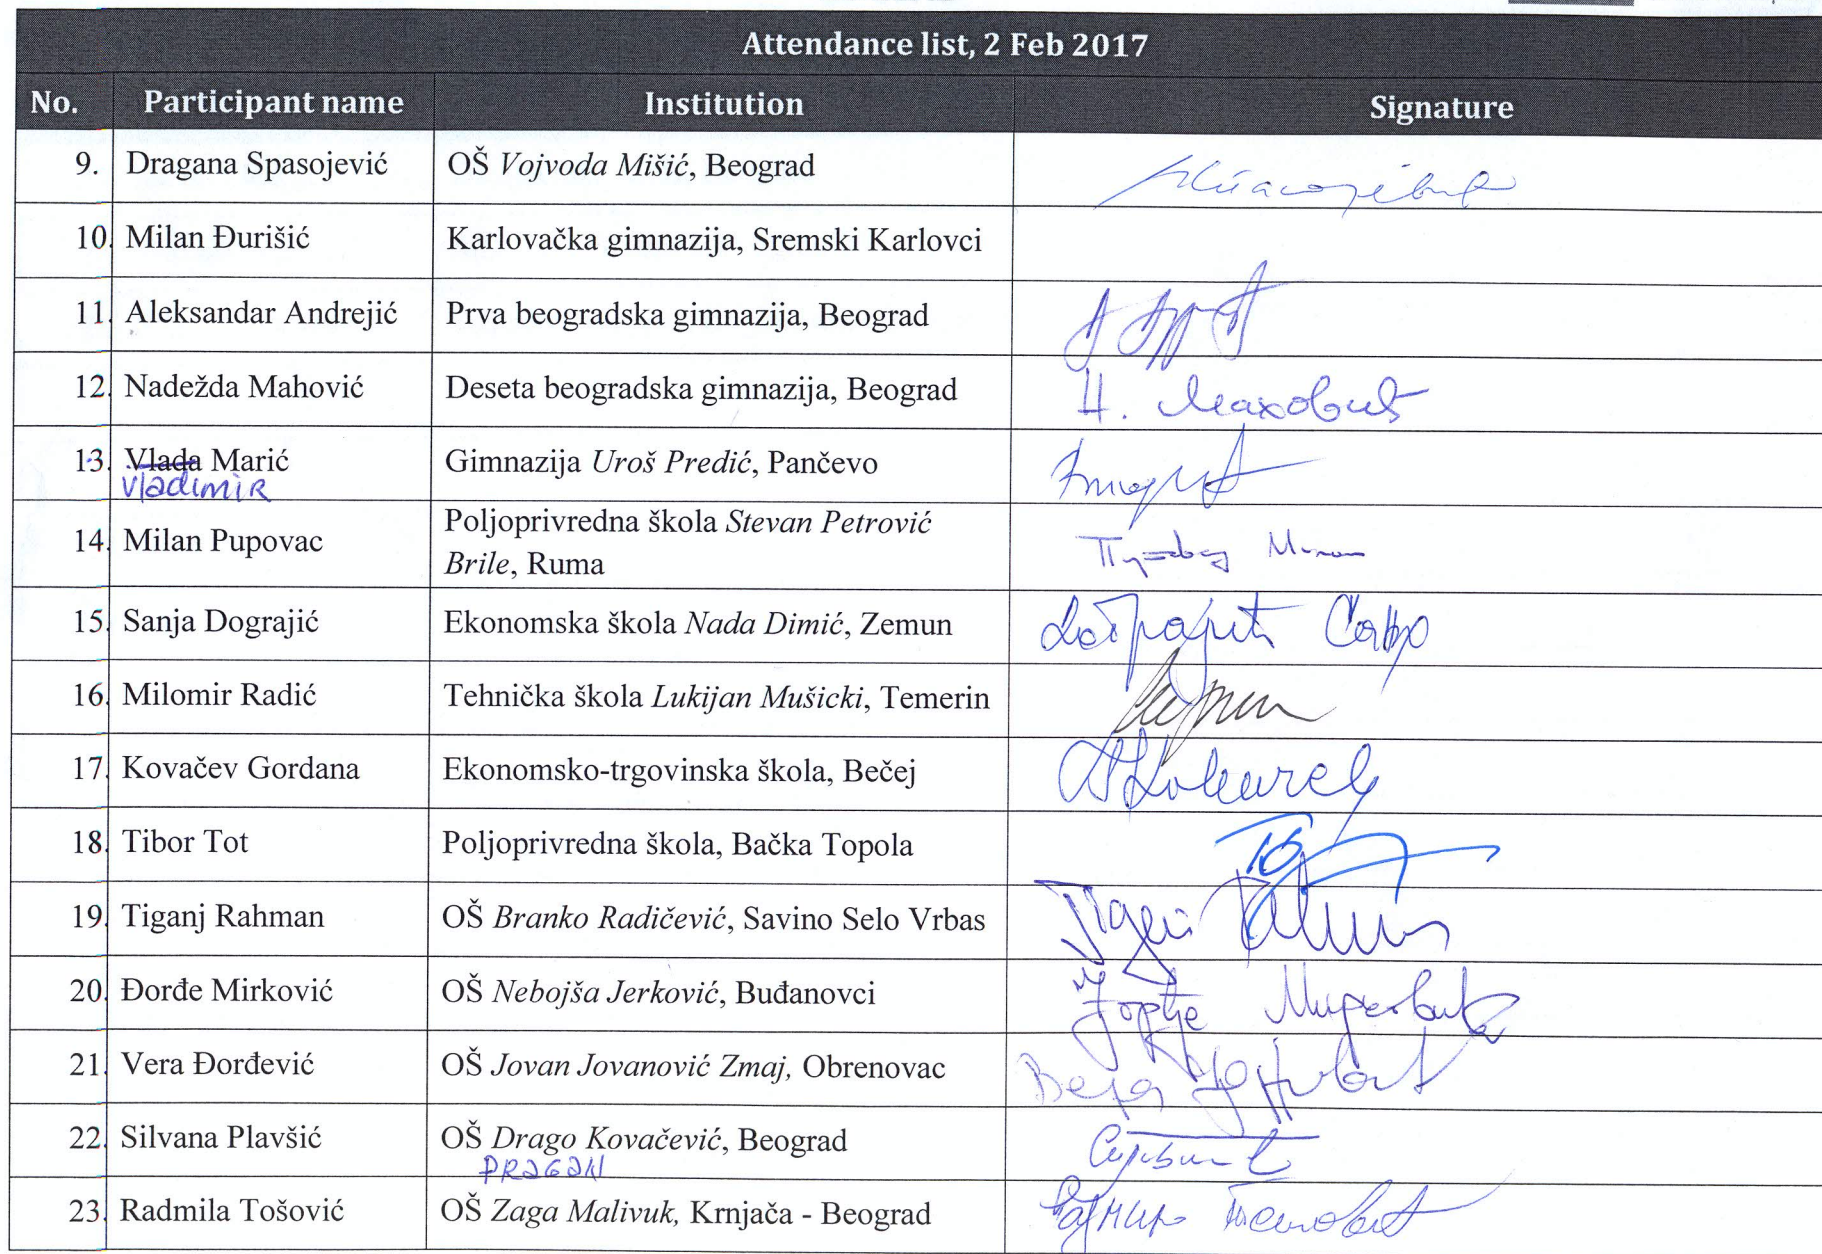 Attendance list, 2 Feb 2017
No. Participant name Institution Signature
9. Dragana Spasojević OŠ Vojvoda Mišić, Beograd
10. Milan Đurišić Karlovačka gimnazija, Sremski Karlovci
11. Aleksandar Andrejić Prva beogradska gimnazija, Beograd
12. Nadežda Mahović Deseta beogradska gimnazija, Beograd Н. Маховић
13. Vlada Marić Gimnazija Uroš Predić, Pančevo
vladimir
14. Milan Pupovac Poljoprivredna škola Stevan Petrović
Brile, Ruma
15. Sanja Dograjić Ekonomska škola Nada Dimić, Zemun Дограјић Сања
16. Milomir Radić Tehnička škola Lukijan Mušicki, Temerin
17. Kovačev Gordana Ekonomsko-trgovinska škola, Bečej
18. Tibor Tot Poljoprivredna škola, Bačka Topola
19. Tiganj Rahman OŠ Branko Radičević, Savino Selo Vrbas
20. Đorđe Mirković OŠ Nebojša Jerković, Buđanovci Ђорђе Мирковић
21. Vera Đorđević OŠ Jovan Jovanović Zmaj, Obrenovac Вера Ђорђевић
22. Silvana Plavšić OŠ Drago Kovačević, Beograd
DRAGAN
23. Radmila Tošović OŠ Zaga Malivuk, Krnjača - Beograd Радмила Тошовић